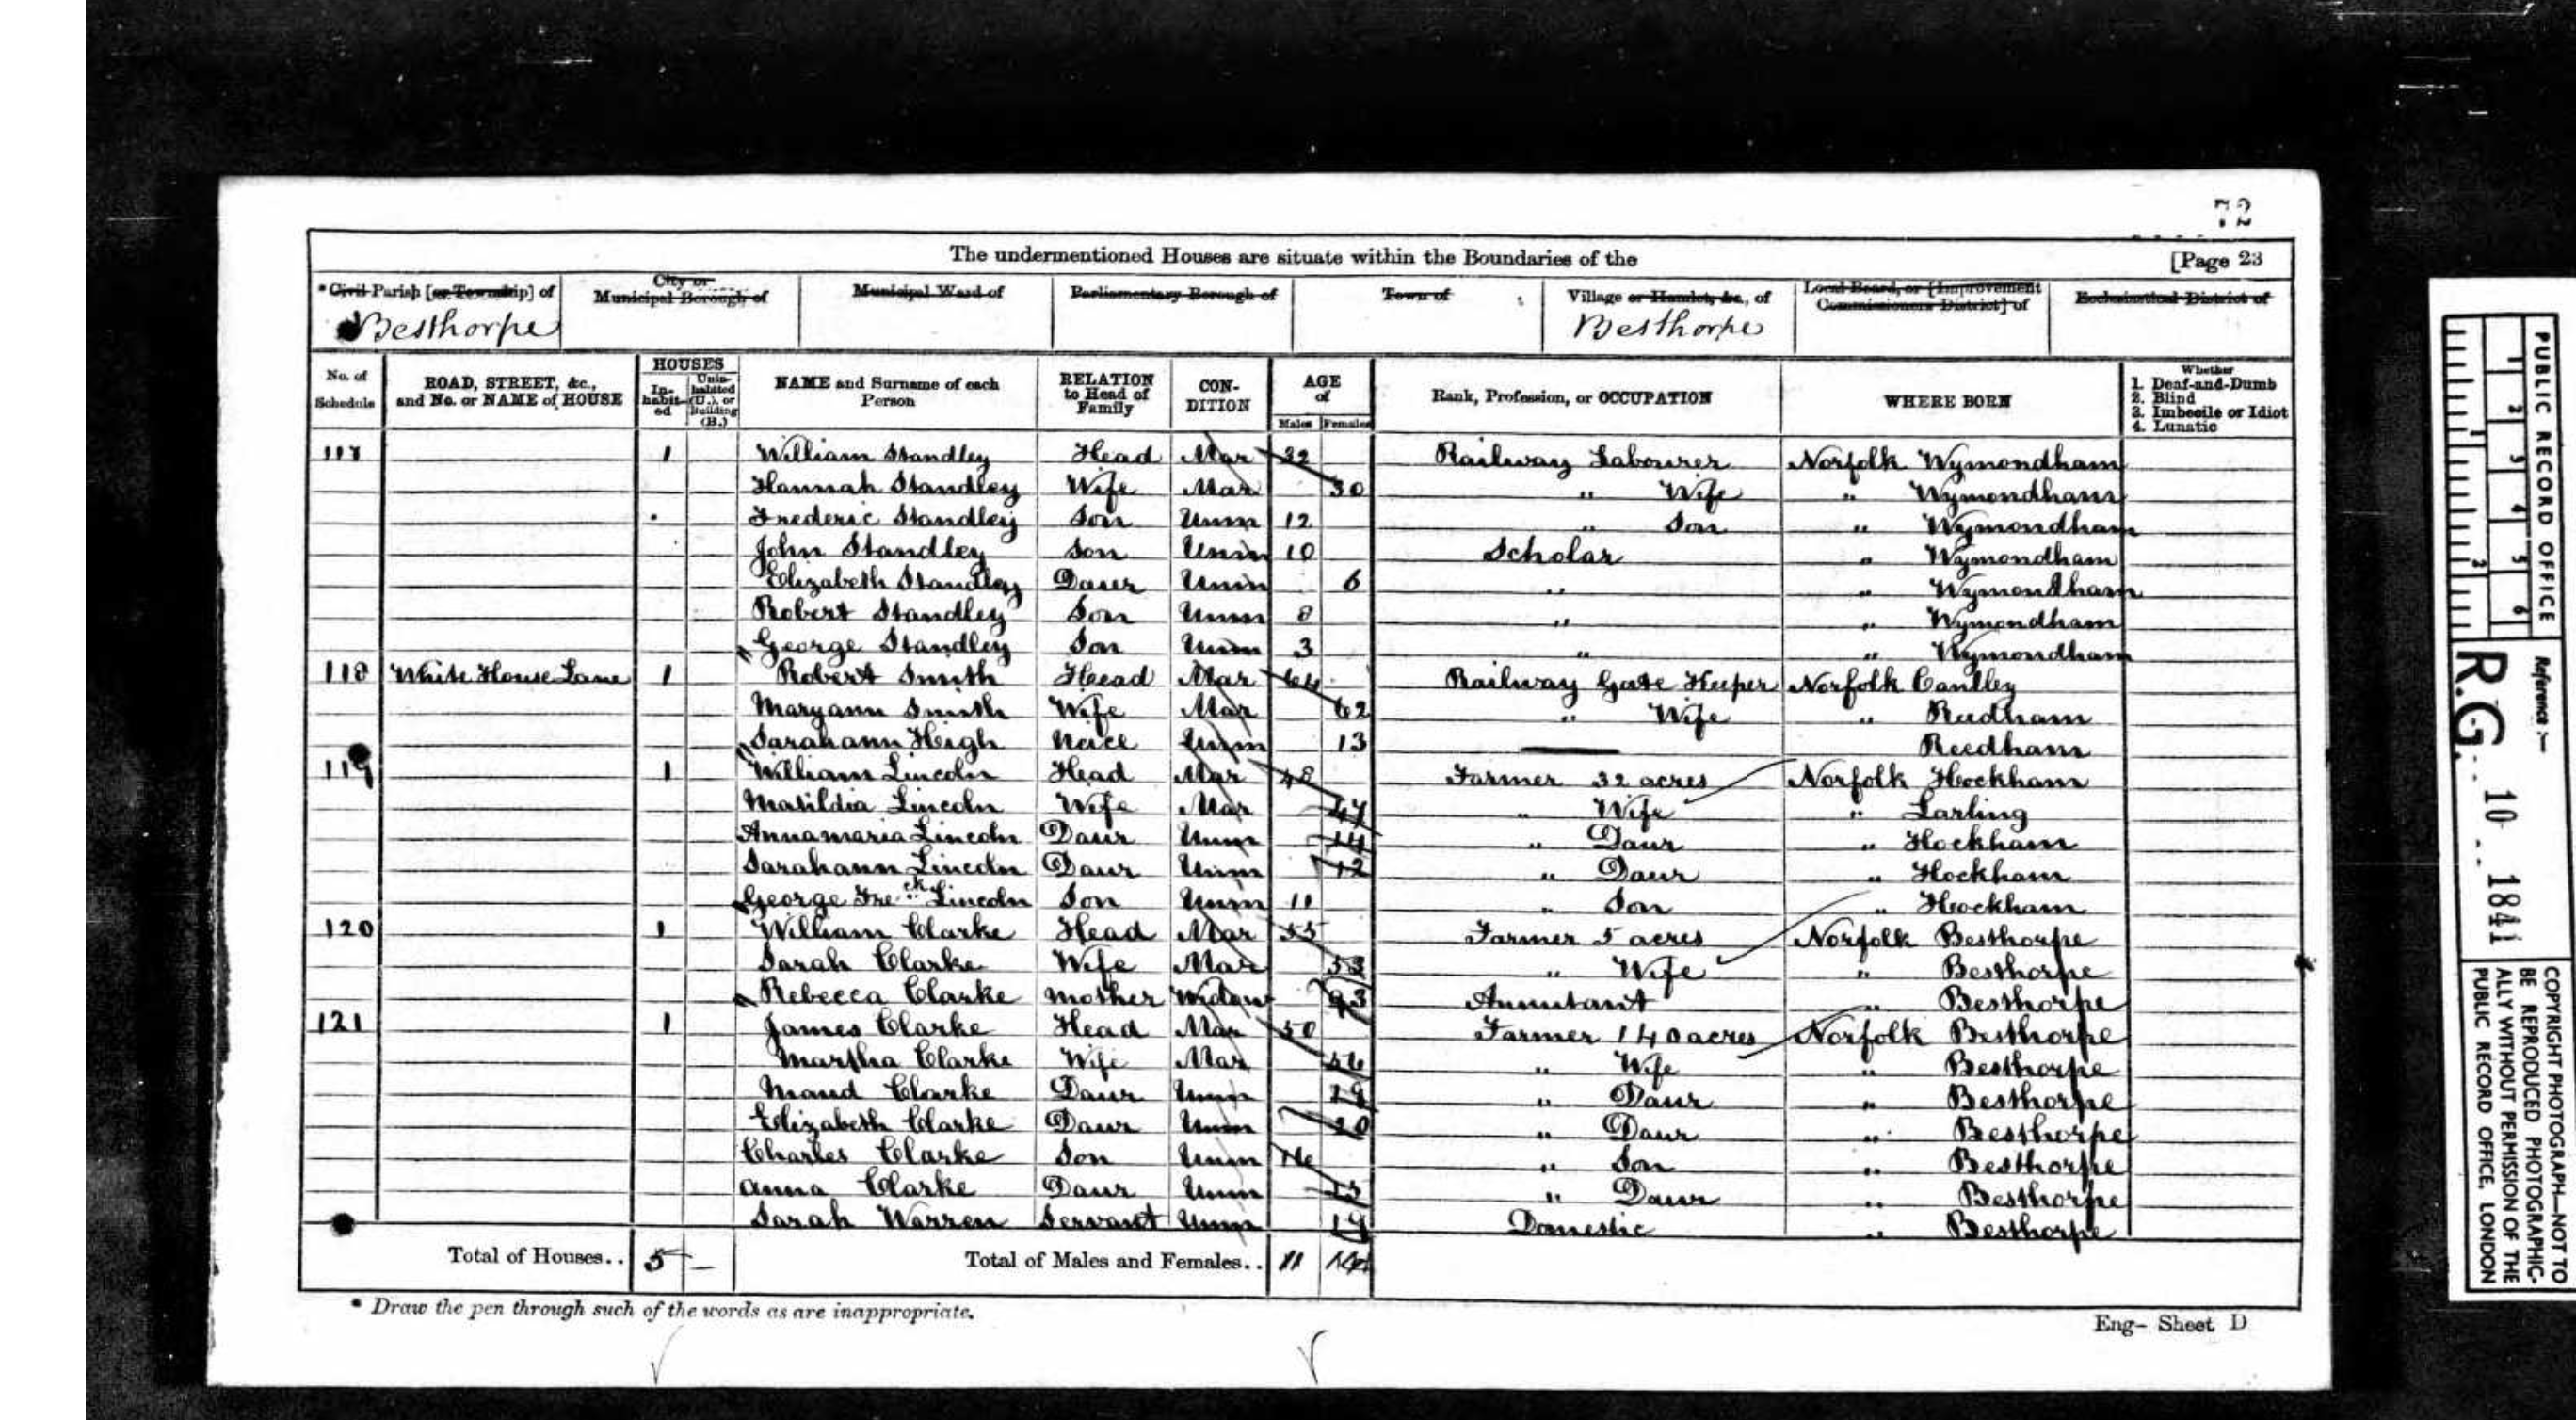 72
The undermentioned Houses are situate within the Boundaries of the [Page 23
* Civil Parish [or Township] of
Besthorpe
City or Municipal Borough of
Municipal Ward of
Parliamentary Borough of
Town of
Village or Hamlet, &c., of
Besthorpe
Local Board, or [Improvement Commissioners District] of
Ecclesiastical District of
No. of Schedule
ROAD, STREET, &c., and No. or NAME of HOUSE
HOUSES
In-habit-ed
Unin-habited (U.), or Building (B.)
NAME and Surname of each Person
RELATION to Head of Family
CON-DITION
AGE of
Males Females
Rank, Profession, or OCCUPATION
WHERE BORN
Whether
1. Deaf-and-Dumb
2. Blind
3. Imbecile or Idiot
4. Lunatic
117 1 William Standley Head Mar 32 Railway Labourer Norfolk Wymondham
Hannah Standley Wife Mar 30 " Wife " Wymondham
Frederic Standley Son Unm 12 " Son " Wymondham
John Standley Son Unm 10 Scholar " Wymondham
Elizabeth Standley Daur Unm 6 " " Wymondham
Robert Standley Son Unm 8 " " Wymondham
George Standley Son Unm 3 " " Wymondham
118 White House Lane 1 Robert Smith Head Mar 64 Railway Gate Keeper Norfolk Cantley
Maryann Smith Wife Mar 62 " Wife " Reedham
Sarahann High Neice Unm 13 Reedham
119 1 William Lincoln Head Mar 48 Farmer 32 acres Norfolk Hockham
Matildia Lincoln Wife Mar 47 " Wife " Larling
Annamaria Lincoln Daur Unm 14 " Daur " Hockham
Sarahann Lincoln Daur Unm 12 " Daur " Hockham
George Freck Lincoln Son Unm 11 " Son " Hockham
120 1 William Clarke Head Mar 55 Farmer 5 acres Norfolk Besthorpe
Sarah Clarke Wife Mar 53 " Wife " Besthorpe
Rebecca Clarke Mother Widow 93 Annutant " Besthorpe
121 1 James Clarke Head Mar 50 Farmer 140 acres Norfolk Besthorpe
Martha Clarke Wife Mar 56 " Wife " Besthorpe
Maud Clarke Daur Unm " Daur " Besthorpe
Elizabeth Clarke Daur Unm 20 " Daur " Besthorpe
Charles Clarke Son Unm 16 " Son " Besthorpe
Anna Clarke Daur Unm " Daur " Besthorpe
Sarah Warren Servant Unm 19 Domestic " Besthorpe
Total of Houses.. 5 — Total of Males and Females.. 11 14
* Draw the pen through such of the words as are inappropriate.
Eng- Sheet D
1 2 3 4 5 6
PUBLIC RECORD OFFICE
Reference :-
R.G. 10 1841
COPYRIGHT PHOTOGRAPH—NOT TO
BE REPRODUCED PHOTOGRAPHIC-
ALLY WITHOUT PERMISSION OF THE
PUBLIC RECORD OFFICE, LONDON